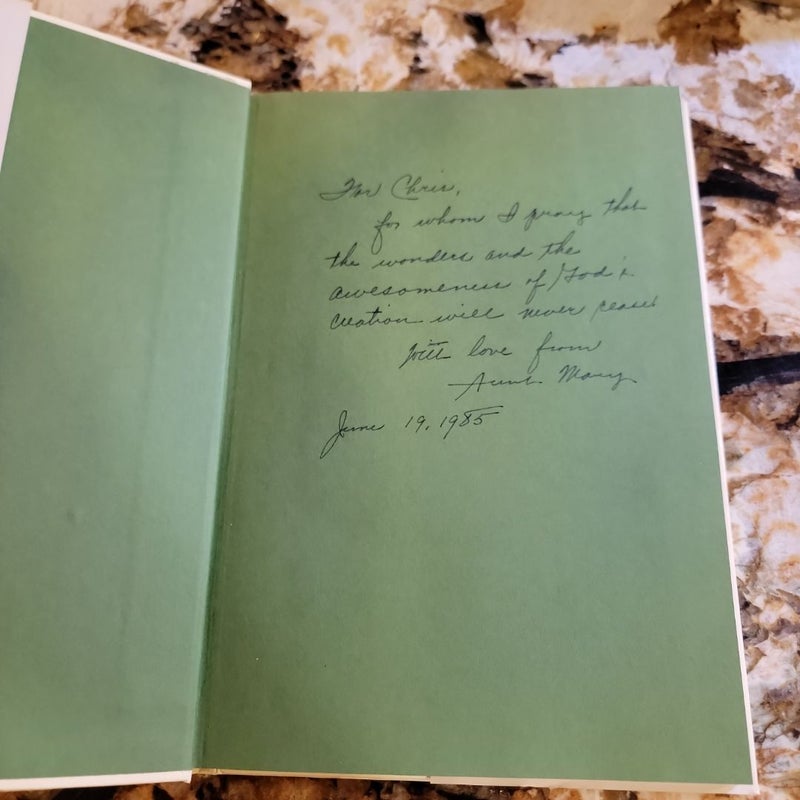 For Chris,
for whom I pray that
the wonders and the
awesomeness of God's
creation will never cease!
With love from
Aunt Mary
June 19, 1985